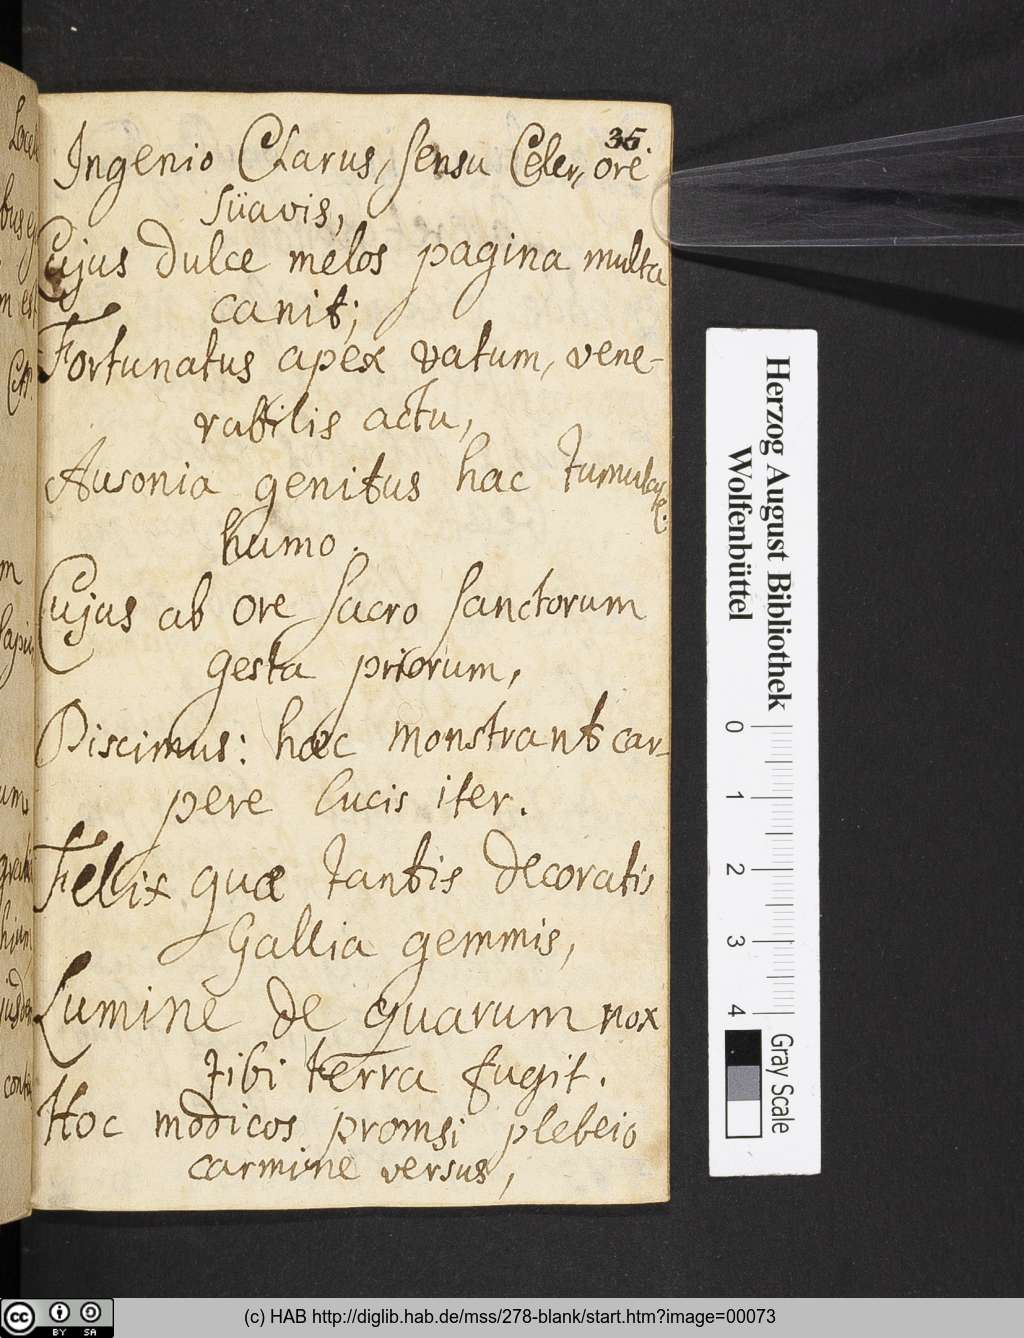 35.
Ingenio Clarus, sensu Celer, ore
süavis,
Cujus dulce melos pagina multa
canit;
Fortunatus apex vatum, vene-
rabilis actu,
Ausonia genitus hac tumulatꝰ e.
humo.
Cujus ab ore sacro sanctorum
gesta priorum,
Discimus: hæc monstrant car-
pere lucis iter.
Felix quæ tantis decoratis
Gallia gemmis,
Lumine de quarum nox
tibi terra fugit.
Hoc modicos promsi plebeio
carmine versus,
bus
m
um
Herzog August Bibliothek
Wolfenbüttel
0 1 2 3 4
Gray Scale
cc BY SA
(c) HAB http://diglib.hab.de/mss/278-blank/start.htm?image=00073